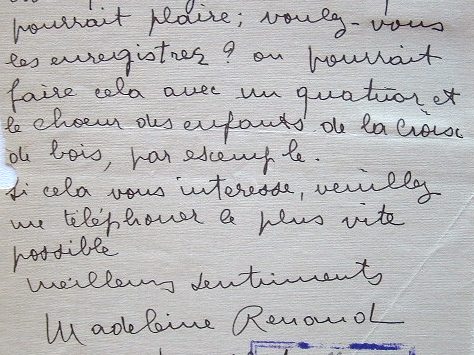 pourrait plaire; voulez-vous
les enregistrez? on pourrait
faire cela avec un quatuor et
le choeur des enfants de la Croix
de bois, par exemple.
Si cela vous interesse, veuillez
me téléphoner le plus vite
possible
Meilleurs sentiments
Madeleine Renaud